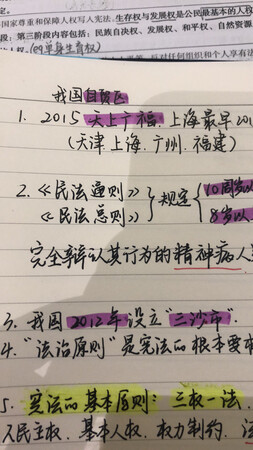 定。
国家尊重和保障人权写人宪法,生存权与发展权是公民最基本的人权
段:第三阶段内容包括:民族自决权、发展权、和平权、自然资源
人权。(四单身生育权)
对任何组织和个人享有
我国自贸区
1. 2015 天上广福.上海最早20
(天津.上海.广州.福建)
2.《民法通则》}规定{10周岁以
《民法总则》 8岁以
完全辨认其行为的精神病人
3. 我国2012年设立“三沙市”.
4. “法治原则”是宪法的根本要
5. 宪法的基本原则:三权一法.
人民主权.基本人权.权力制约.法